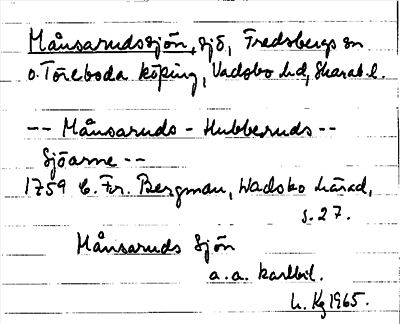 Månsarudssjön, sjö, Fredsbergs sn
o. Töreboda köping, Vadsbo hd, Skarab. l.
-- Månsaruds - Hubberuds --
Sjöarne --
1759 C. Fr. Bergman, Wadsbo härad,
s. 27.
Månsaruds Sjön
a. a. kartbil.
1965.